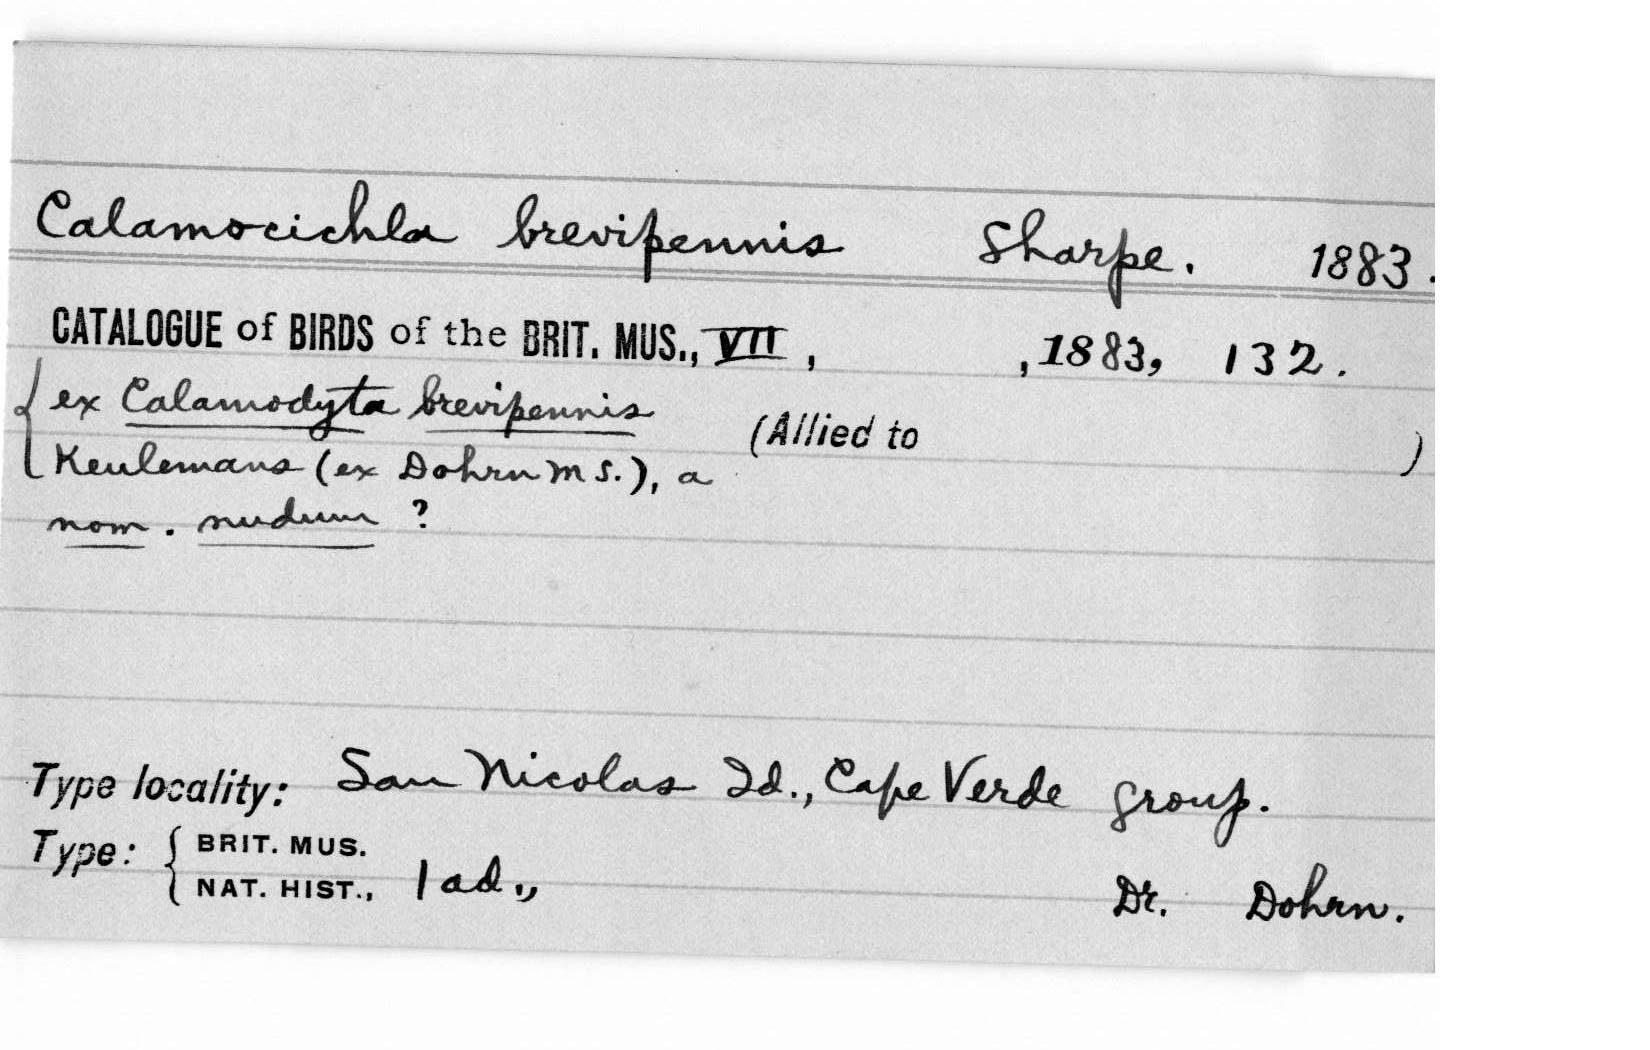 Calamocichla brevipennis Sharpe. 1883.
CATALOGUE of BIRDS of the BRIT. MUS., VII, ,1883, 132.
ex Calamodyta brevipennis (Allied to )
Keulemans (ex Dohrn MS.), a
nom. nudum ?
Type locality: San Nicolas Id., Cape Verde group.
Type: { BRIT. MUS.
NAT. HIST., 1 ad., Dr. Dohrn.